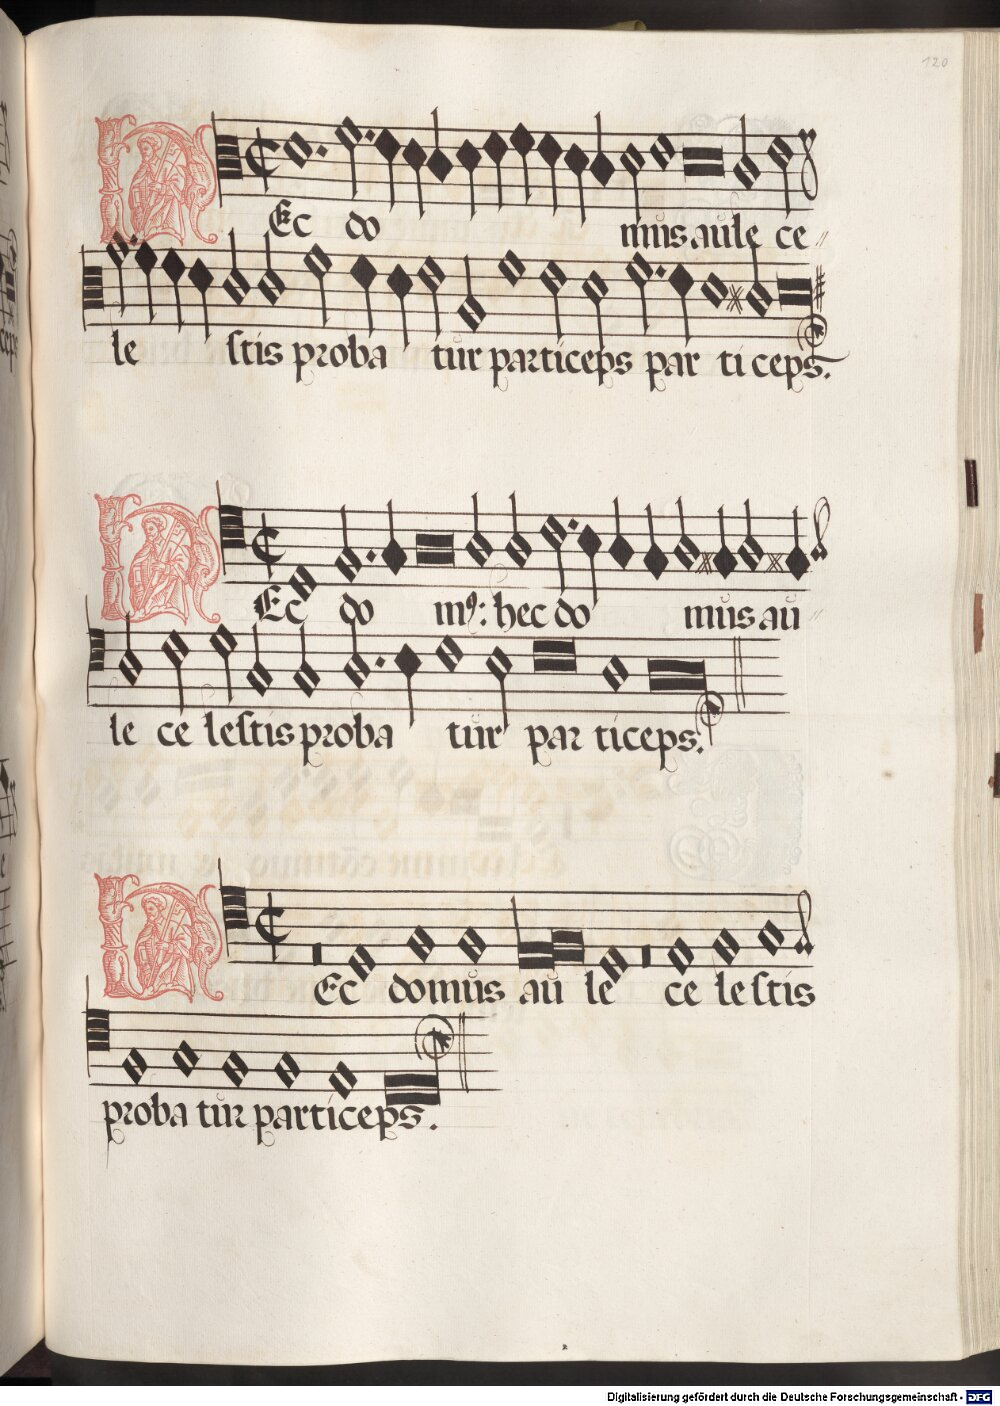 120
HEc do mus aule ce
le stis proba tur particeps par ti ceps.
HEc do m9: hec do mus au
le ce lestis proba tur par ticeps.
HEc domus au le ce lestis
proba tur particeps.
Digitalisierung gefördert durch die Deutsche Forschungsgemeinschaft - DFG